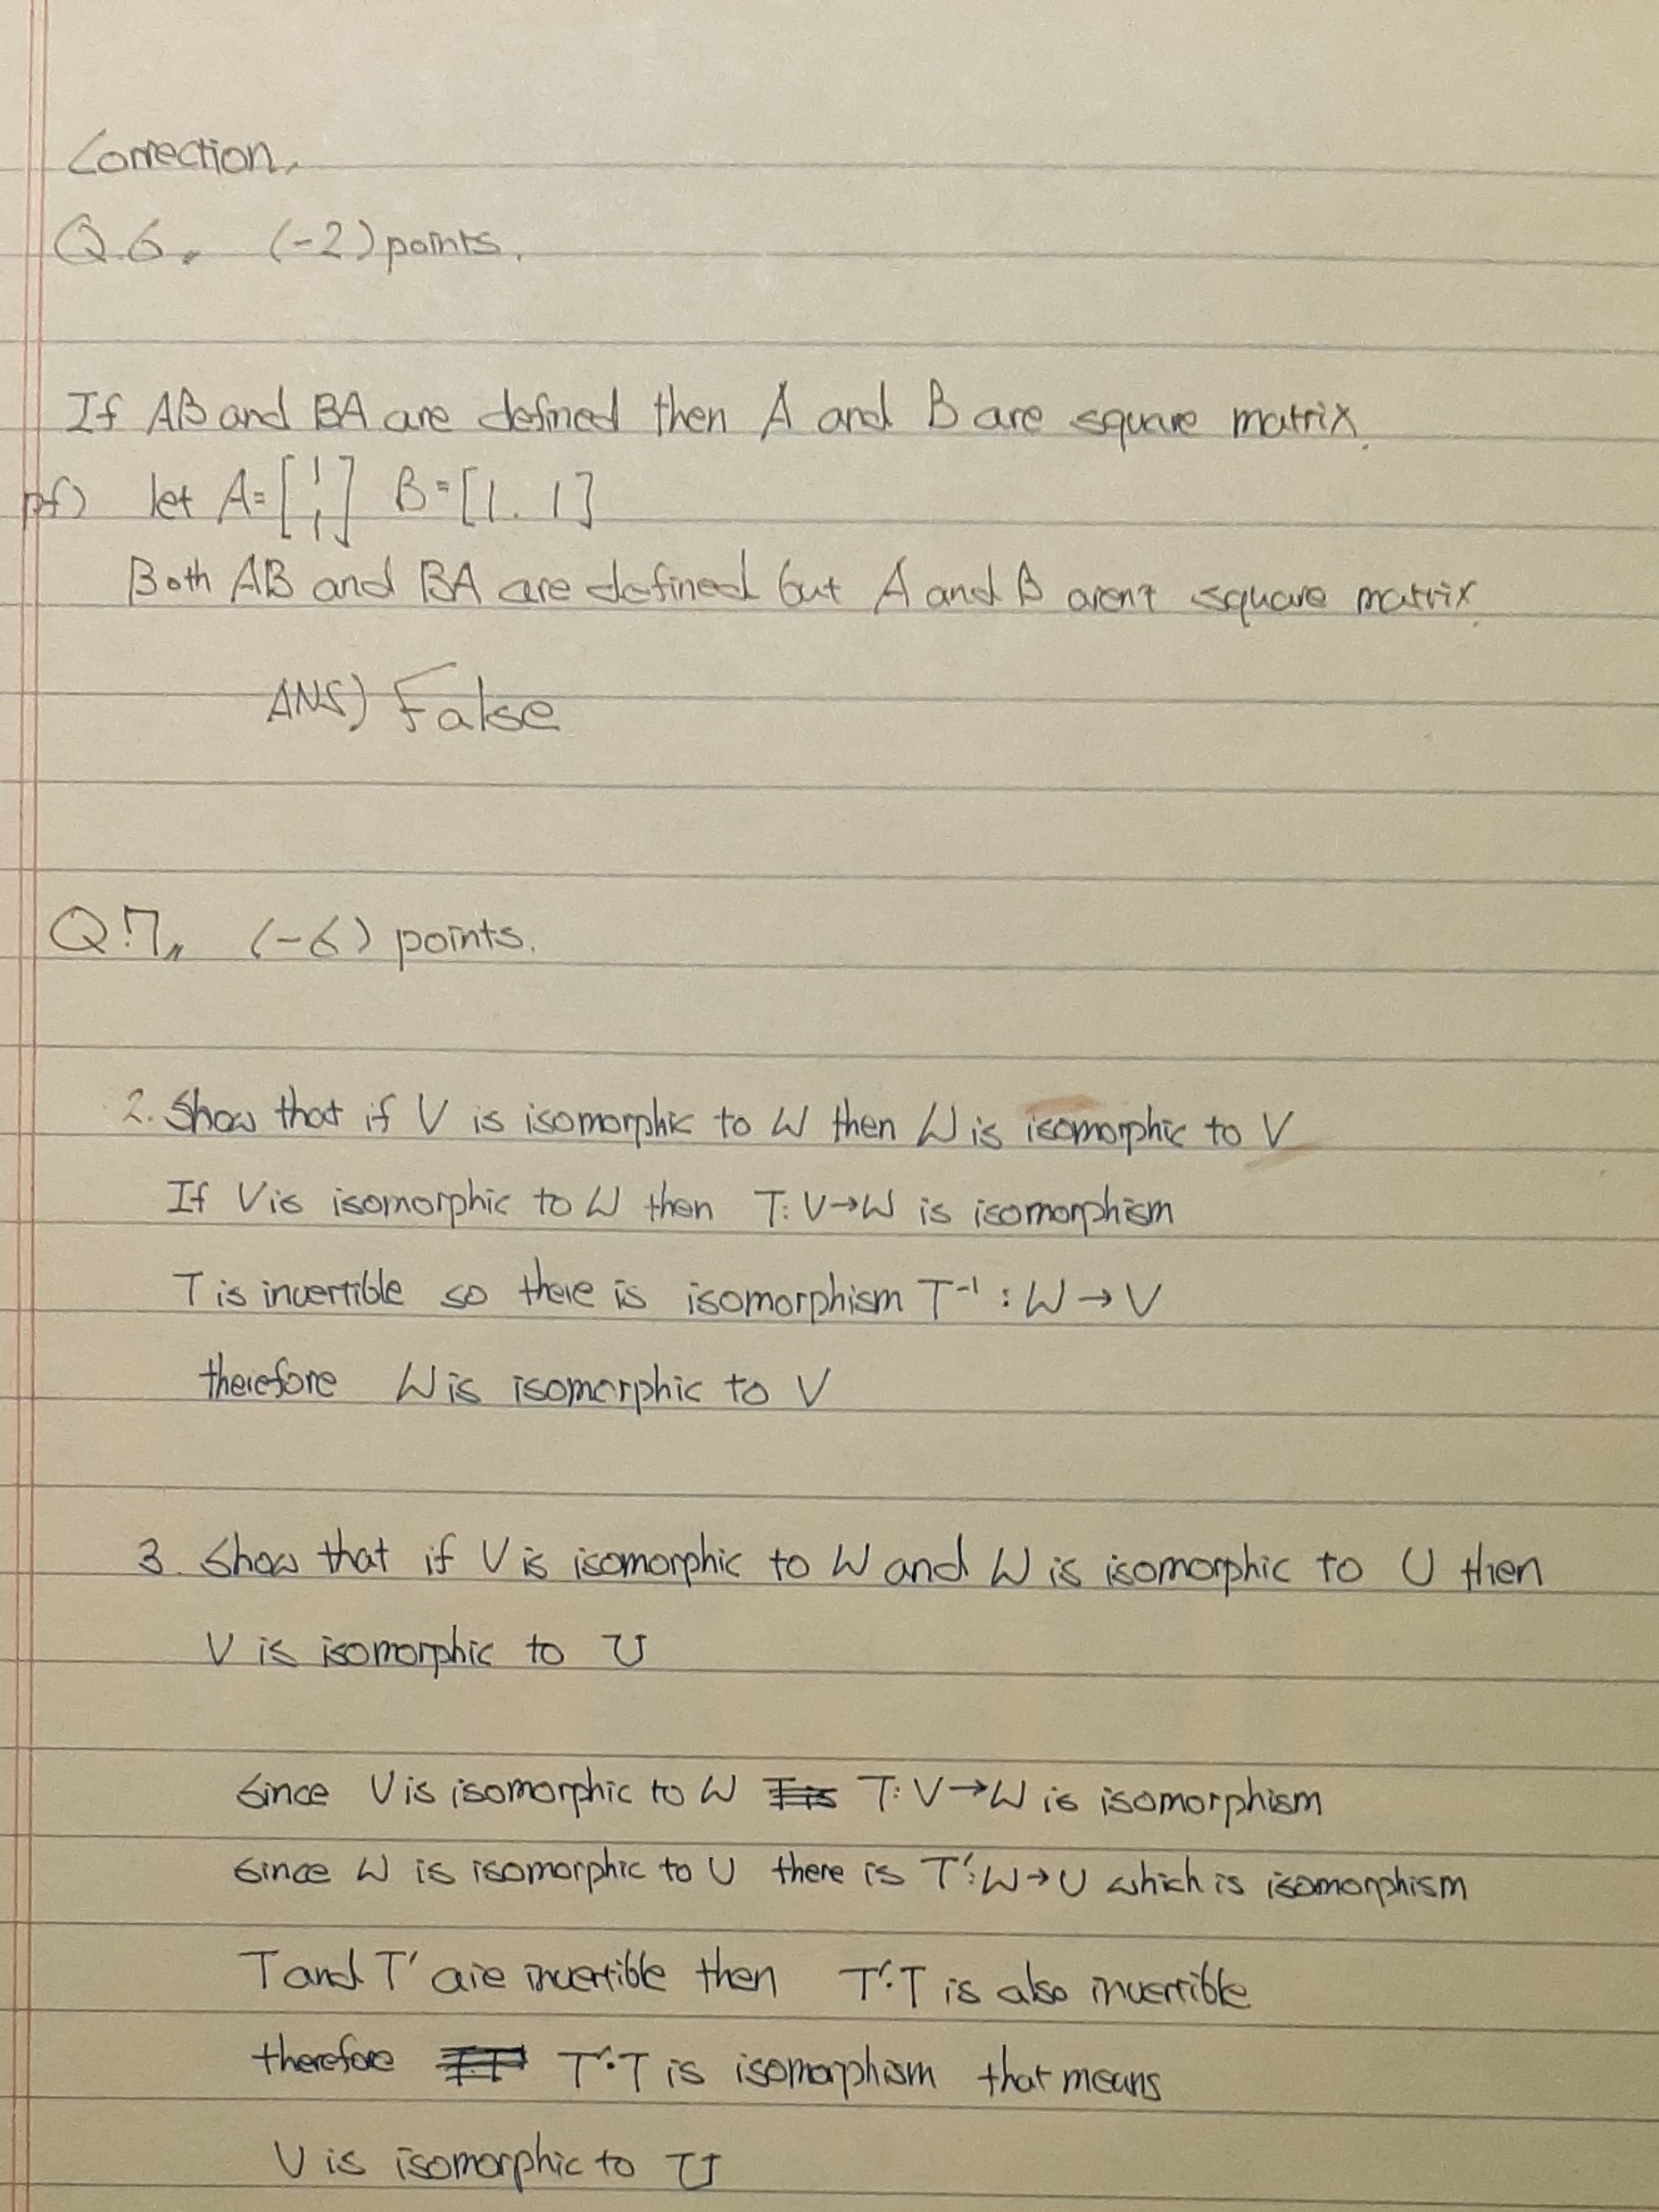 Correction.
Q.6. (-2) points.
If AB and BA are defined then A and B are square matrix.
pf) let A=[1 1] B=[1. 1]
Both AB and BA are defined but A and B aren't square matrix.
ANS) False
Q.7. (-6) points.
2. Show that if V is isomorphic to W then W is isomorphic to V
If V is isomorphic to W then T: V→W is isomorphism
T is invertible so there is isomorphism T⁻¹ : W → V
therefore W is isomorphic to V
3. Show that if V is isomorphic to W and W is isomorphic to U then
V is isomorphic to U
Since V is isomorphic to W T: V→W is isomorphism
Since W is isomorphic to U there is T': W→U which is isomorphism
T and T' are invertible then T'·T is also invertible
therefore T'·T is isomorphism that means
V is isomorphic to U